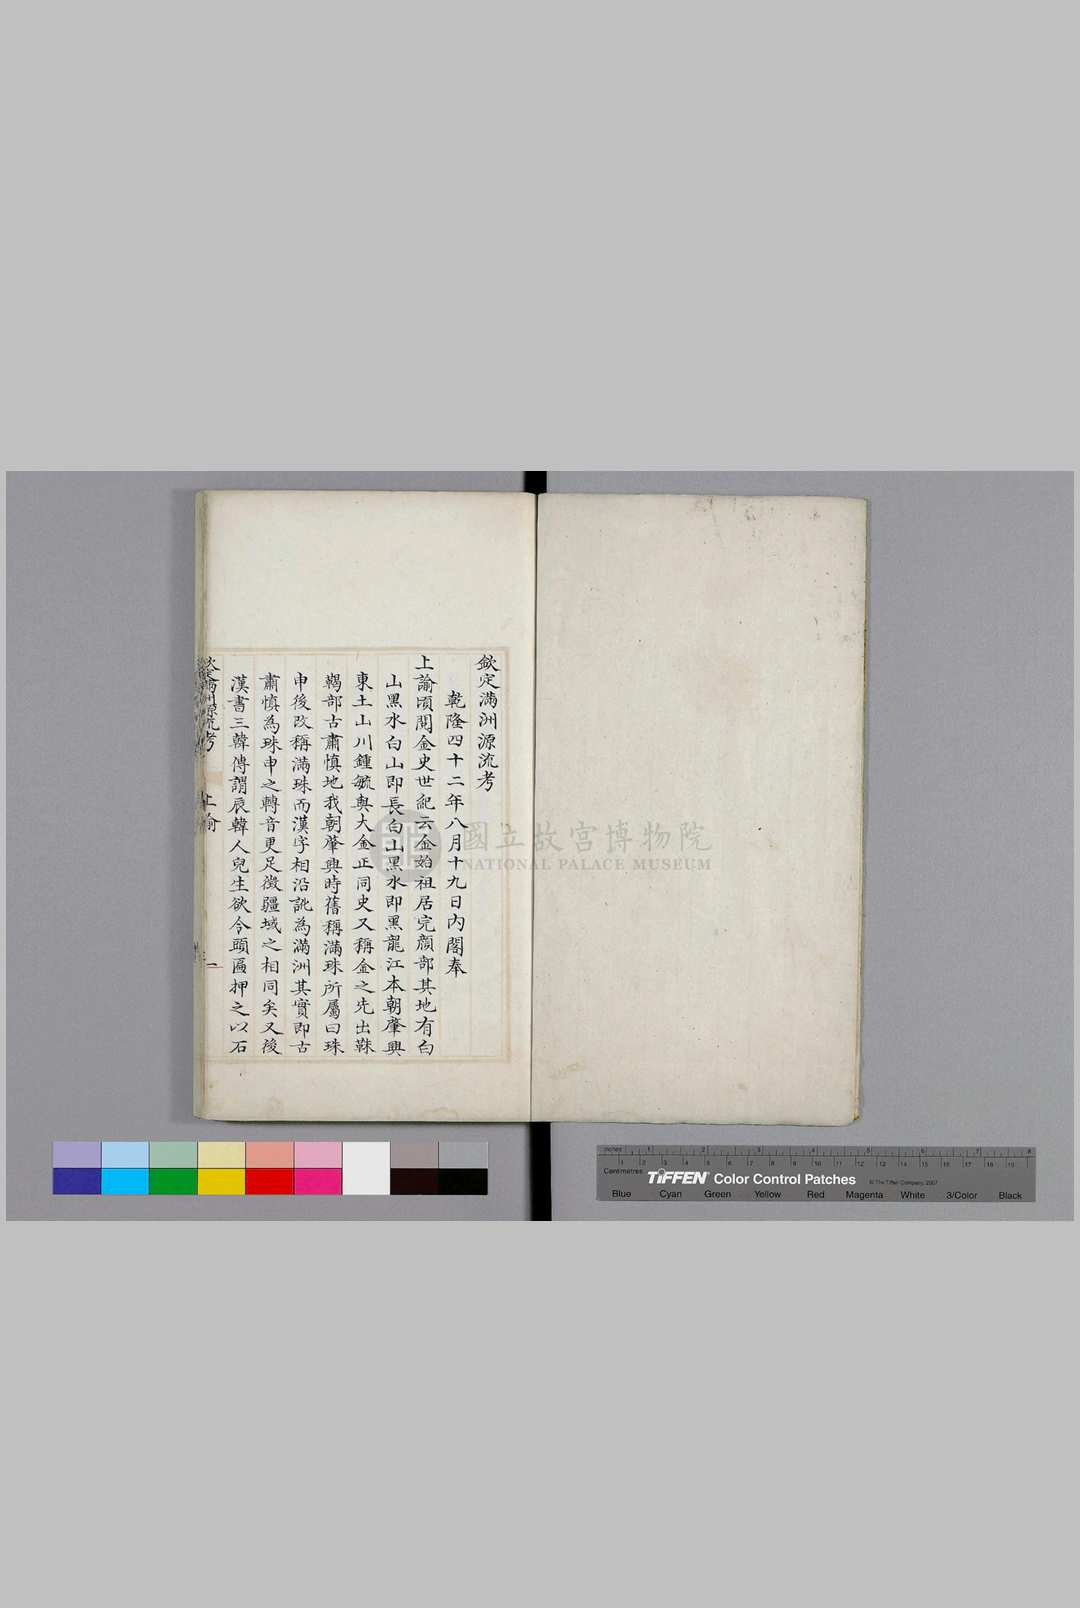 欽定滿洲源流考
乾隆四十二年八月十九日內閣奉
上諭頃閱金史世紀云金始祖居完顏部其地有白
山黑水白山即長白山黑水即黑龍江本朝肇興
東土山川鍾毓與大金正同史又稱金之先出靺
鞨部古肅慎地我朝肇興時舊稱滿珠所屬曰珠
申後改稱滿珠而漢字相沿訛為滿洲其實即古
肅慎為珠申之轉音更足徵疆域之相同矣又後
漢書三韓傳謂辰韓人兒生欲令頭匾押之以石
欽定滿洲源流考
上諭
一
國立故宮博物院
NATIONAL PALACE MUSEUM
inches 1 2 3 4 5 6 7 8
Centimetres 1 2 3 4 5 6 7 8 9 10 11 12 13 14 15 16 17 18 19
TIFFEN Color Control Patches © The Tiffen Company, 2007
Blue Cyan Green Yellow Red Magenta White 3/Color Black